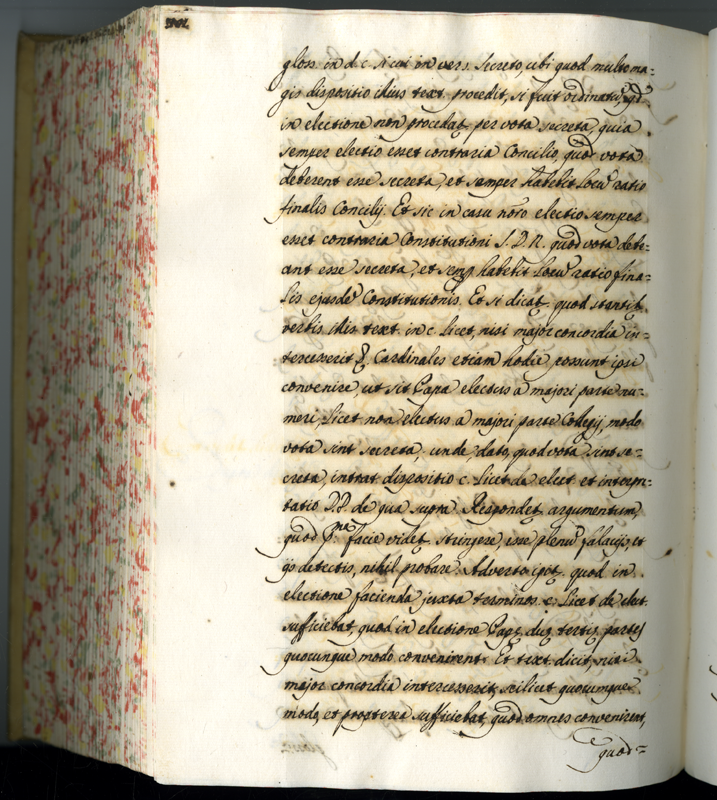 gloss. in d. c. sicut in vers. secreto, ubi quod multo ma=
gis dispositio illius text. procedit, si fuit ordinatũ, qd
in electione non procedat per vota secreta, quia
semper electio esset contraria Concilio, quod vota
deberent esse secreta, et semper habebit locũ ratio
finalis Concilij. Et sic in casu nõro electio semper
esset contraria Constitutioni S. D. N. quod vota debe=
ant esse secreta, et semp habebit locũ ratio fina=
lis ejusdẽ Constitutionis. Et si dicat quod stantib.
verbis illis text. in c. licet, nisi major concordia in=
tercesserit &, Cardinales etiam hodie possunt ipsi
convenire, ut sit Papa electus a majori parte nu=
meri, licet non electus a majori parte Collegij, modo
vota sint secreta, unde, dato, quod vota sint se=
creta, intrat dispositio c. licet de elect. et interpr=
tatio DD. de qua supra. Respondet argumentum,
quod pma facie videt stringere, esse plenũ falacijs, et
ijs detectis, nihil probare. Adverto igit quod in
electione facienda juxta terminos c. licet de elect.
sufficiebat, quod in electione Papæ duæ tertiæ partes
quocunque modo convenirent. Et text. dicit, nisi
major concordia intercesserit, scilicet quocumque
modo, et propterea sufficiebat, quod omnes convenirent,
quod=